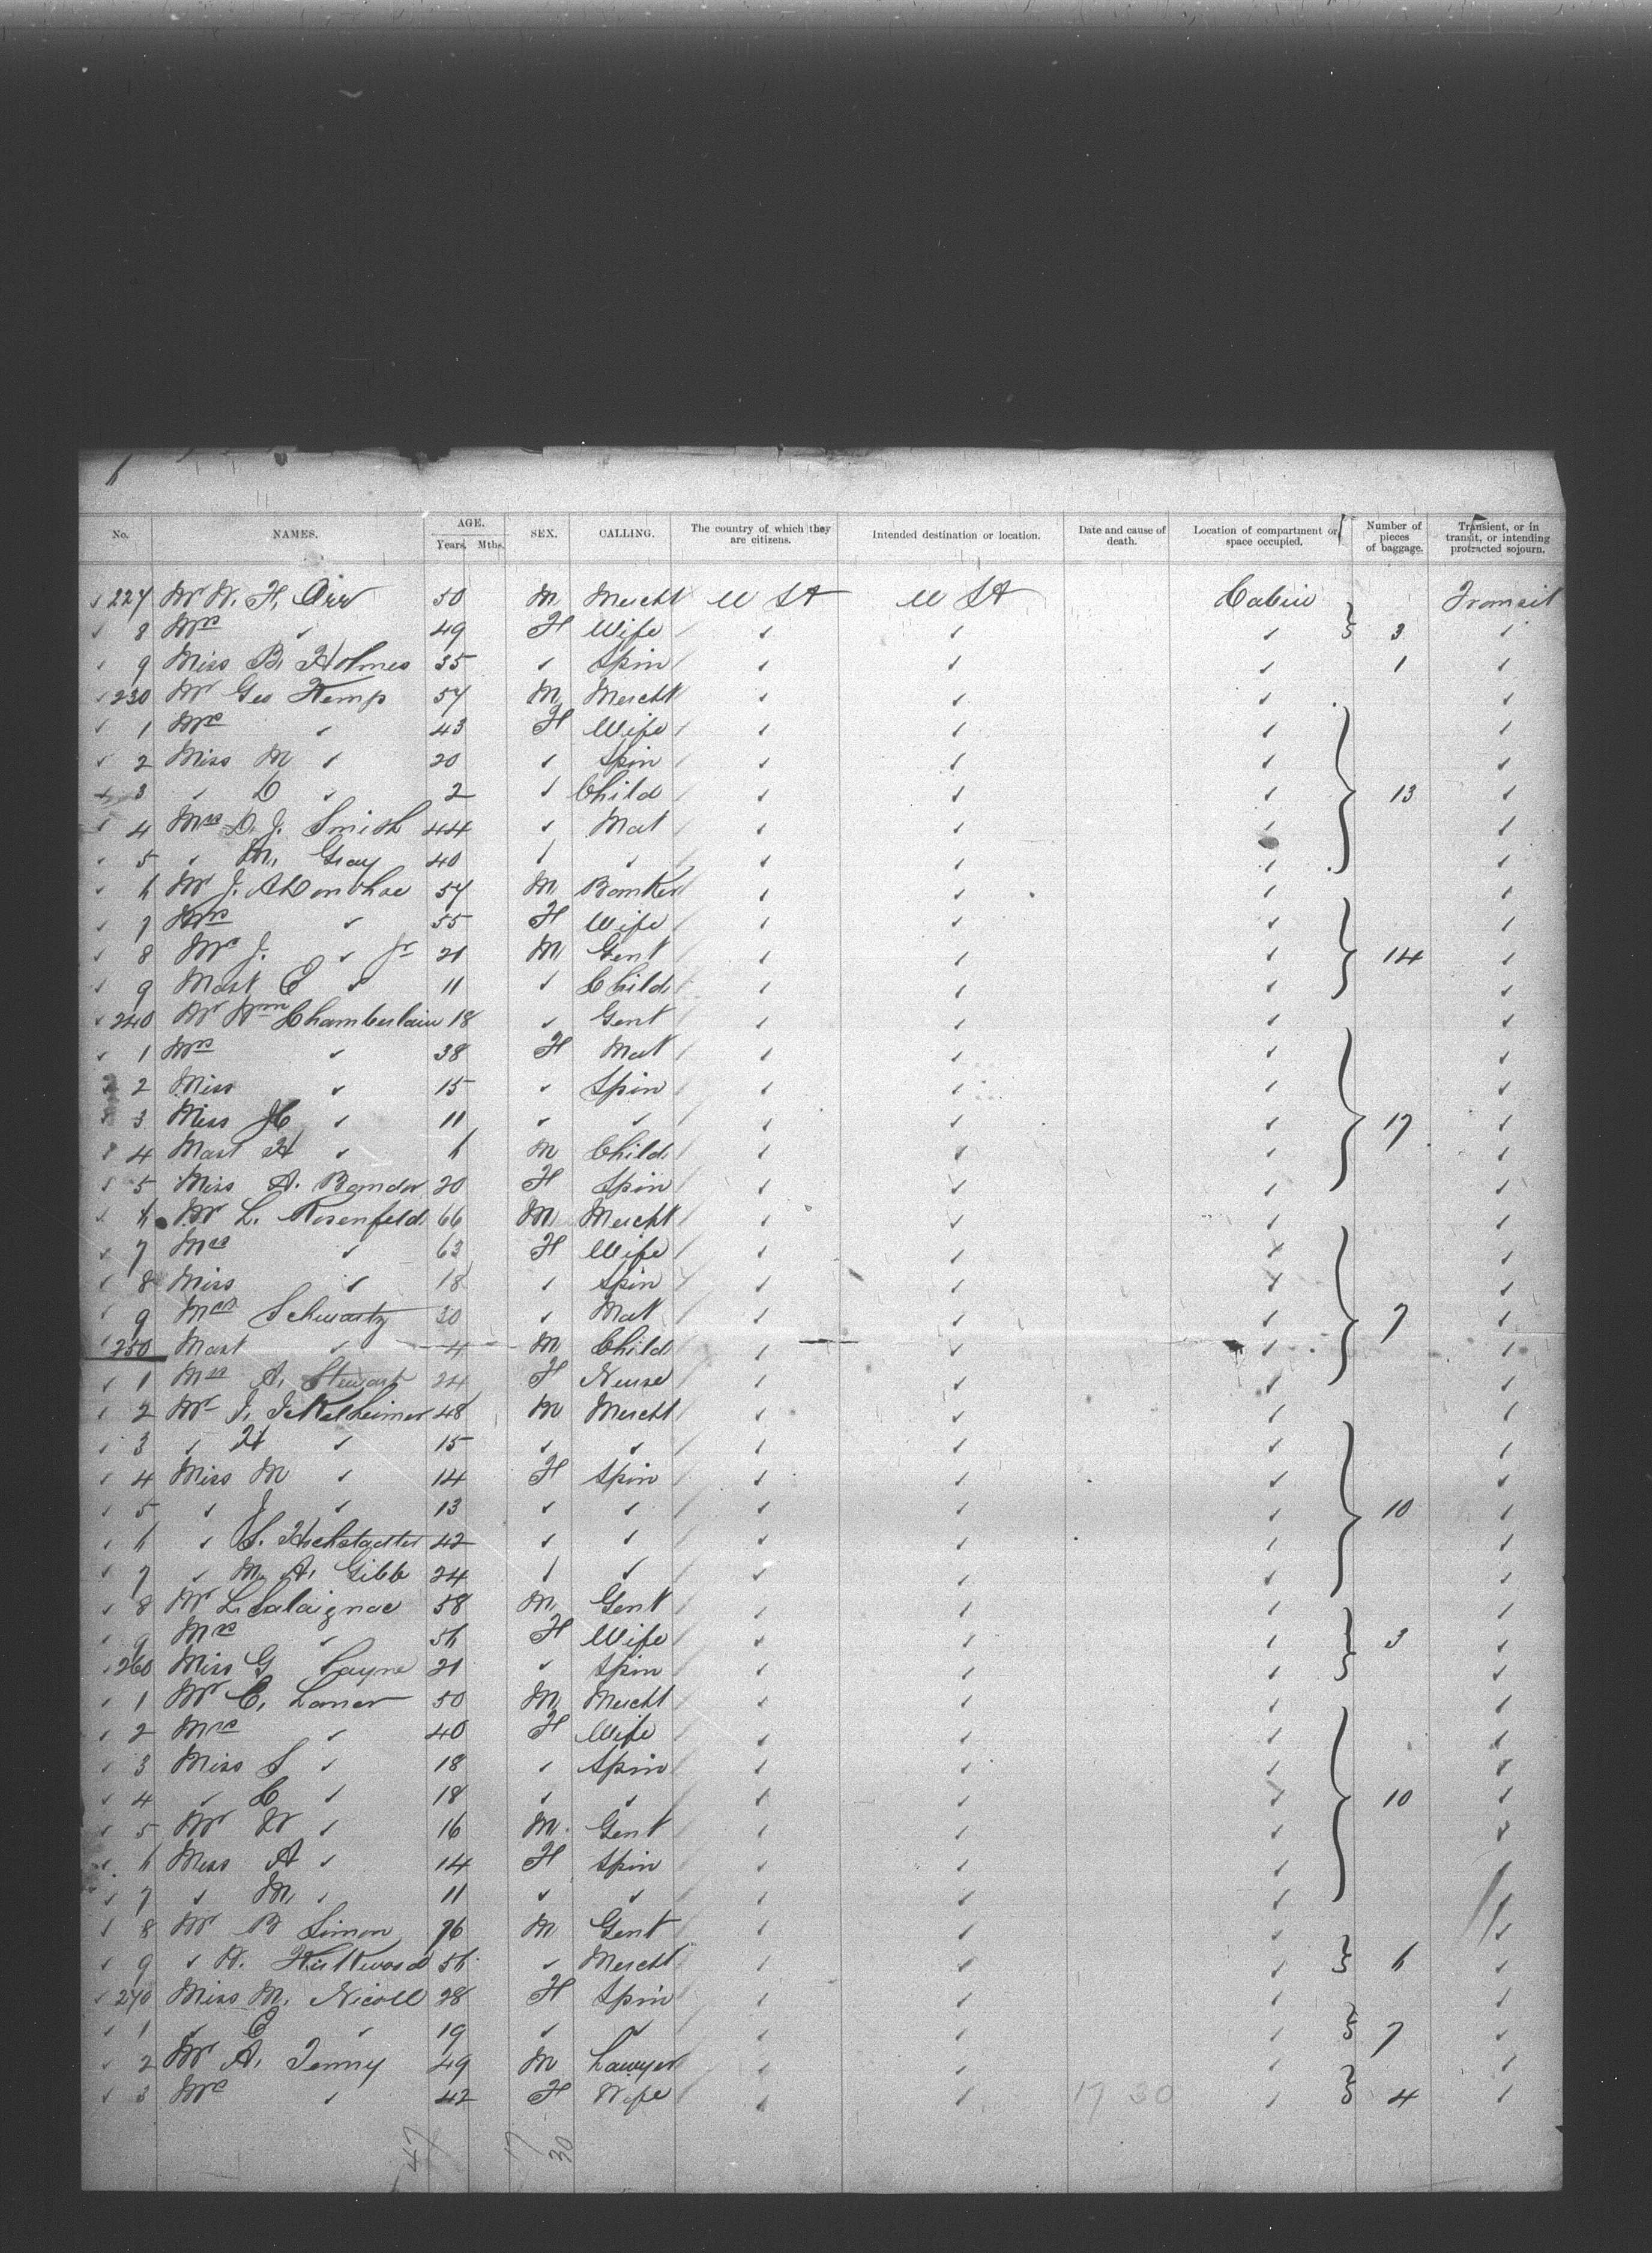 No. NAMES. AGE. Years. Mths. SEX. CALLING. The country of which they are citizens. Intended destination or location. Date and cause of death. Location of compartment or space occupied. Number of pieces of baggage. Transient, or in transit, or intending protracted sojourn.
227 Mr W. H. Orr 50 M Mercht U St U St Cabin Transit
8 Mrs " 49 F Wife " " " 3 "
9 Miss B. Holmes 35 " Spin " " " 1 "
230 Mr Geo Kemp 57 M Mercht " " " "
1 Mrs " 43 F Wife " " " "
2 Miss M " 20 " Spin " " " "
3 " D " 2 " Child " " " 13 "
4 Mrs D. J. Smith 44 " Mat " " " "
5 " M. Gray 40 " " " " " "
6 Mr J. A Donohoe 57 M Banker " " " "
7 Mrs " 55 F Wife " " " "
8 Mr J. " Jr 21 M Gent " " " 14 "
9 Mast E " 11 " Child " " " "
240 Mr Wm Chamberlain 18 " Gent " " " "
1 Mrs " 38 F Mat " " " "
2 Miss " 15 " Spin " " " "
3 Miss " 11 " " " " " 17 "
4 Mast H " 6 M Child " " " "
5 Miss A. 20 F Spin " " " "
6 Mr L. Rosenfeld 66 M Mercht " " " "
7 Mrs " 63 F Wife " " " "
8 Miss " 18 " Spin " " " "
9 Mrs Schwartz 30 " Mat " " " 7 "
250 Mast " 4 M Child " " " "
1 Mrs A. Stewart 24 F Nurse " " " "
2 Mr J. Ickelheimer 48 M Mercht " " " "
3 " H " 15 " " " " " "
4 Miss M " 14 F Spin " " " "
5 " J " 13 " " " " " 10 "
6 " S. 42 " " " " " "
7 " M. A. Gibb 24 " " " " " "
8 Mr L. Salaignac 58 M Gent " " " "
9 Mrs " 56 F Wife " " " 3 "
260 Miss G Payne 21 " Spin " " " "
1 Mr C. Laner 50 M Mercht " " " "
2 Mrs " 40 F Wife " " " "
3 Miss S " 18 " Spin " " " "
4 " C " 18 " " " " " 10 "
5 Mr W " 16 M. Gent " " " "
6 Miss A " 14 F Spin " " " "
7 " M " 11 " " " " " "
8 Mr B Simon 76 M Gent " " " "
9 " W. Kirkwood 56 " Mercht " " " 6 "
270 Miss M. Nicoll 28 F Spin " " " "
1 " C " 19 " " " " " 7 "
2 Mr A. Tenny 49 M Lawyer " " " "
3 Mrs " 42 F Wife " " 17 30 " 4 "
47 17 30